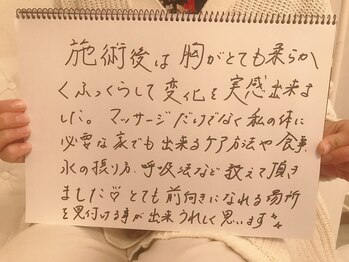 施術後は胸がとても柔らか
くふっくらして変化を実感出来ま
した。マッサージだけでなく私の体に
必要な家でも出来るケア方法や食事
水の摂り方、呼吸法など教えて頂き
ました♡とても前向きになれる場所
を見付ける事が出来うれしく思います